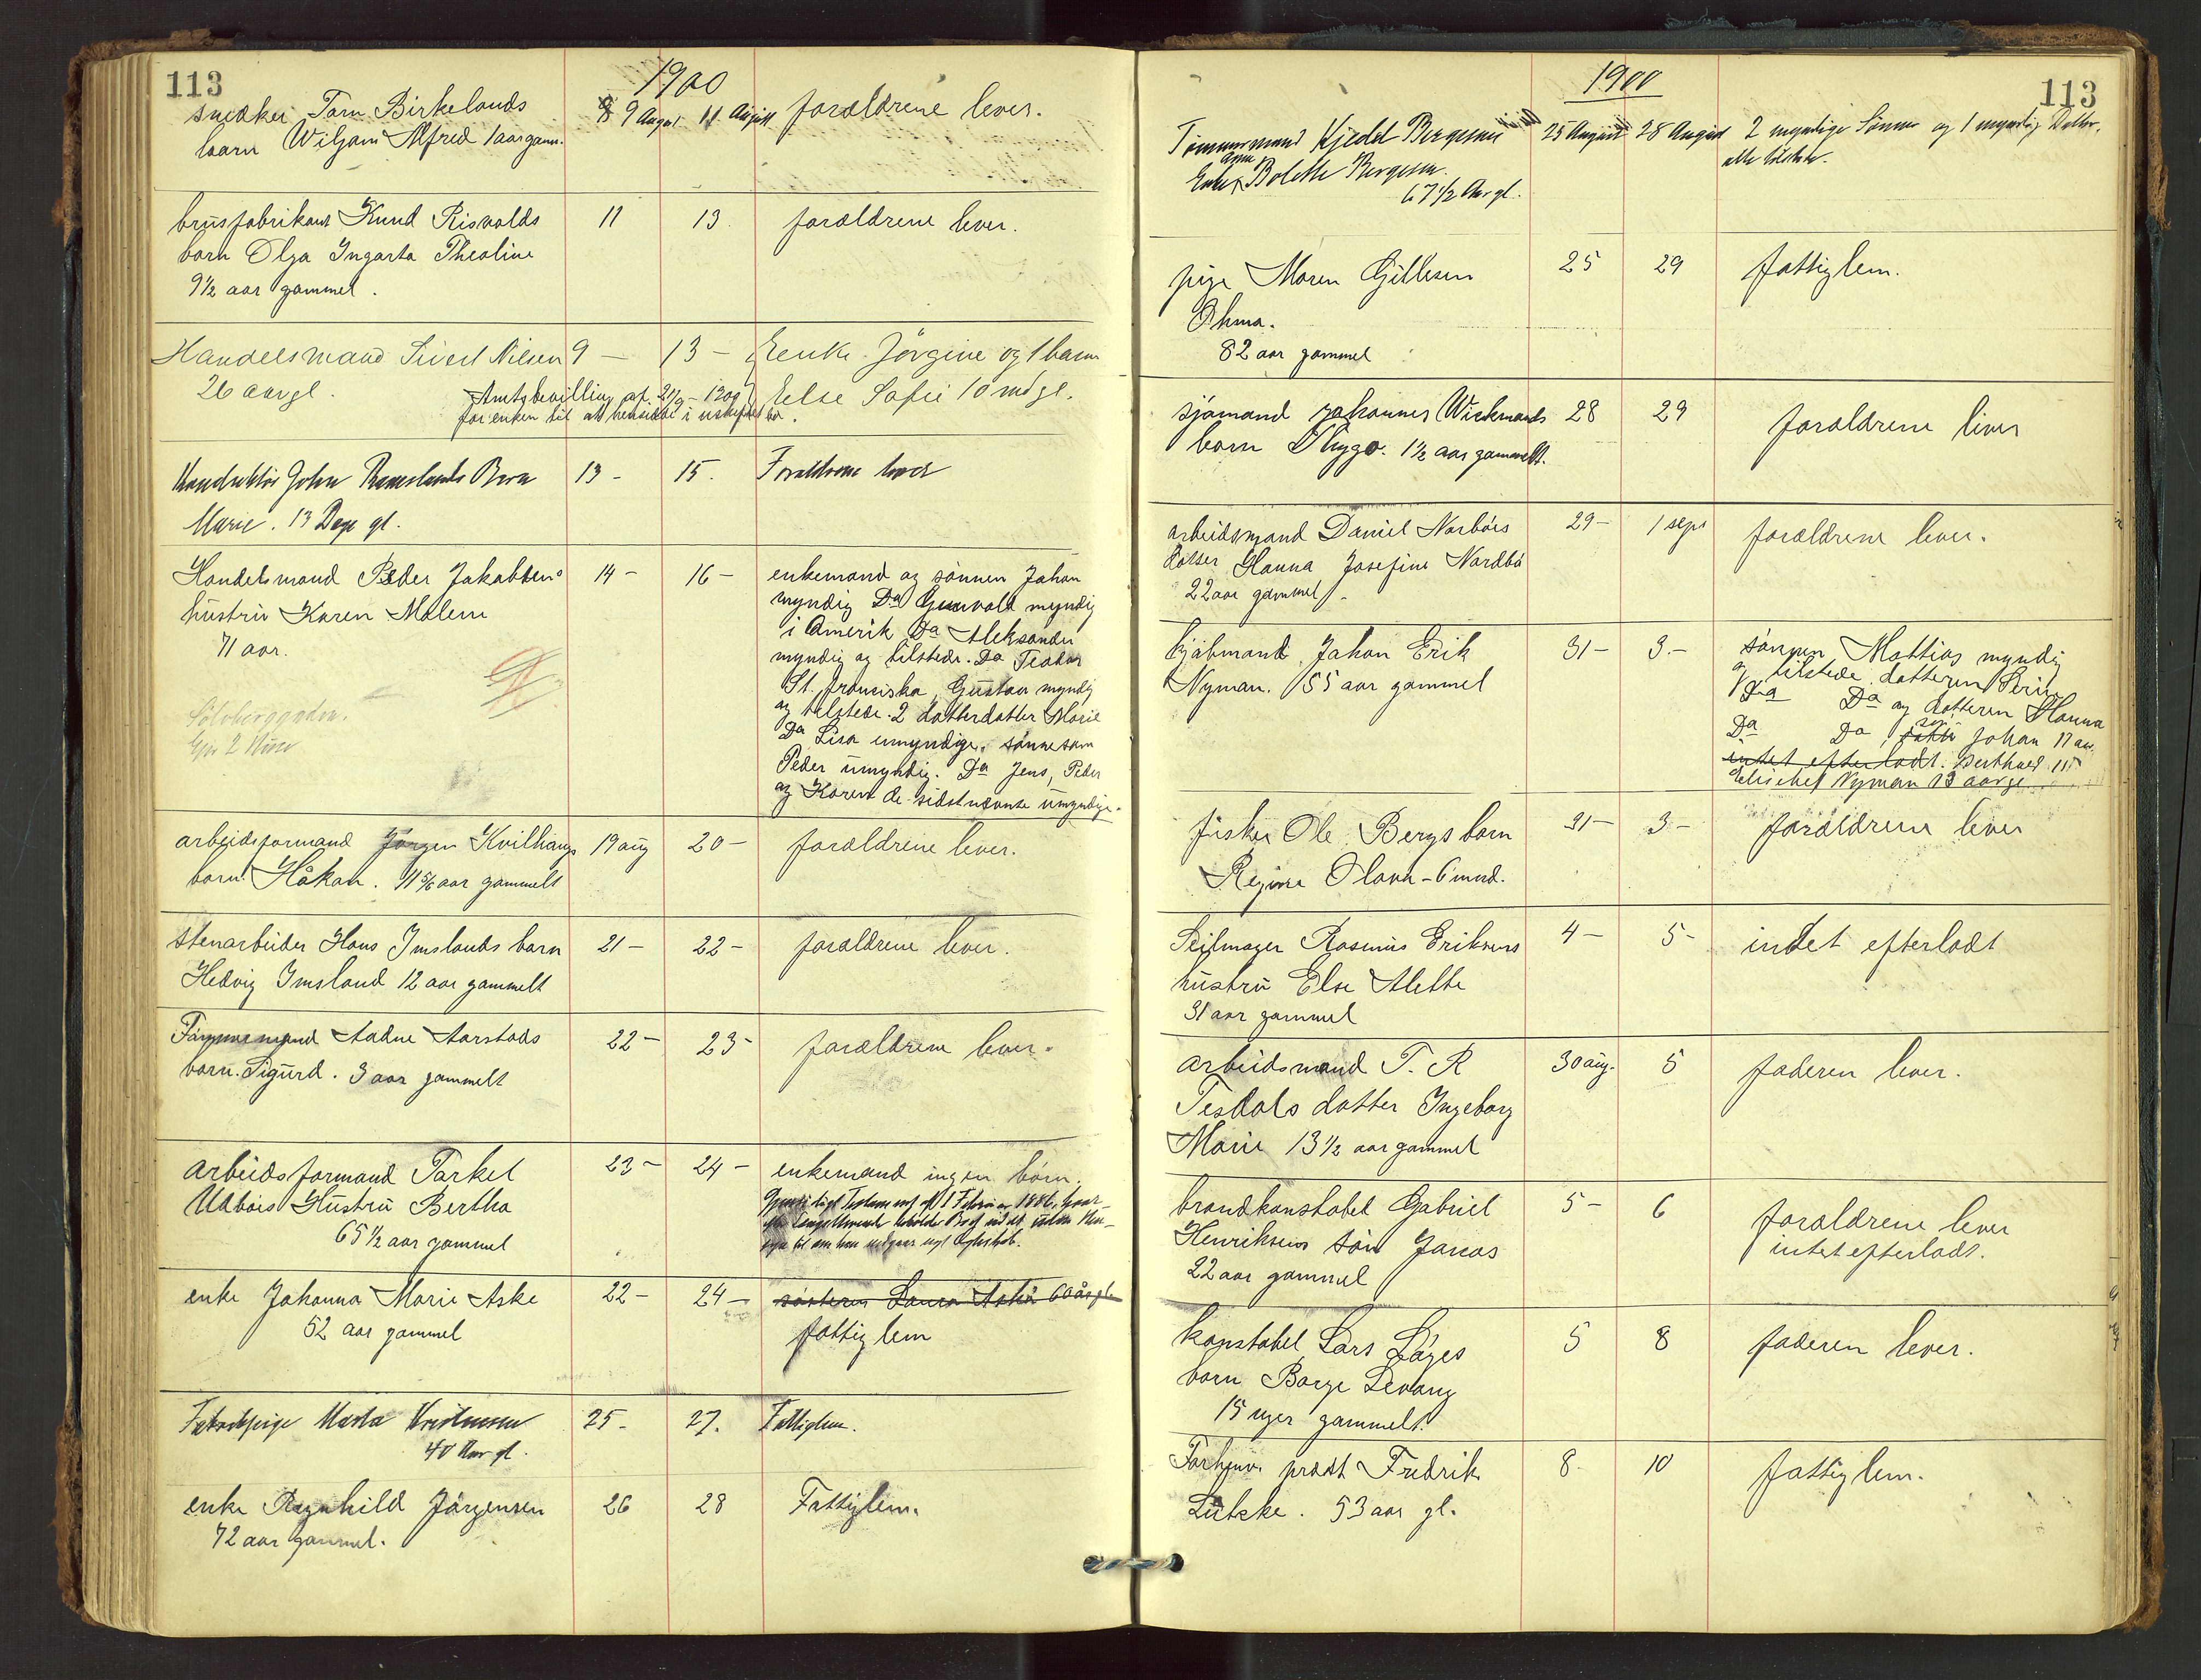 113
1900
snedker Tørn Birkelands
barn Wiljam Alfred 1 aar gam.
9 August
11 August
forældrene lever.
brusfabrikant Knud Risvolds
barn Olga Ingarta Theoline
9½ aar gammel.
11
13
forældrene lever.
Handelsmand Sivert Nilsen
26 aar gl.
9 —
13 —
Enke Jørgine og 1 barn
Else Sofie 10 md gl.
Amtsbevilling af 21/9 - 1900
for enken til at hensidde i uskiftet bo.
Konduktør John Ramslands Barn
Marie. 13 Dage gl.
13 -
15.
Forældrene lever
Handelsmand Peder Jakobsens
hustru Karen Malene
71 aar.
14 -
16 -
enkemand og sønnen Johan
myndig Do Gunvald myndig
i Amerik Do Aleksander
myndig og tilstede. Do Teodor
St. fransiska, Gustav myndig
og tilstede. 2 datterdatter Marie
Do Lisa umyndige. sønnesøn
Peder umyndig. Do Jens, Peder
og Karen de sidstnævnte umyndige.
Sølvberggaden.
Eier 2 Huse
arbeidsformand Jørgen Kvilhaugs
barn Håkon. 11 5/6 aar gammelt
19 aug
20 -
forældrene lever.
stenarbeider Hans Imslands barn
Hedvig Imsland 12 aar gammelt
21 -
22 -
forældrene lever.
Tømmermand Aadne Aarstads
barn Sigurd. 3 aar gammelt
22 -
23 -
forældrene lever.
arbeidsformand Tørkel
Udbøis Hustru Bertha
65½ aar gammel
23 -
24 -
enkemand ingen børn.
Gjensidigt Testament af 1 Februar 1886, hvor-
efter Længstlevende beholder Boet udelt uden Hen-
syn til om han indgaar nyt Ægteskab.
enke Johanna Marie Aske
52 aar gammel
22 -
24 -
søsteren Laura Aske 60 år gl
fattiglem
Fabrikpige Marta Kristensen
40 Aar gl.
25 -
27.
Fattiglem.
enke Ragnhild Jørgensen
72 aar gammel.
26
28
Fattiglem.
113
1900
Tømmermand Kjedel Bergesens
Enke Anna Bolette Bergesen.
67½ Aar gl.
25 August
28 August
2 myndige Sønner og 1 myndig Datter,
alle tilstede.
pige Maren Gjillesen
Ohma.
82 aar gammel
25
29
fattiglem.
sjømand Johannes Wiekmands
barn Thygo. 1½ aar gammelt.
28
29
forældrene lever
arbeidsmand Daniel Norbøis
datter Hanna Josefine Nordbø
22 aar gammel.
29 -
1 sept
forældrene lever.
kjøbmand Johan Erik
Nyman. 55 aar gammel
31 -
3. -
sønnen Mattias myndig
og tilstede. datteren Serine
Do Do og datteren Hanna
Do Do, søn Johan 17 aar,
intet efterladt. Berthard 15
Elischef Nyman 13 aar gl.
fisker Ole Bergs barn
Regine Olava - 6 mnd.
31 -
3 -
forældrene lever
Seilmager Rasmus Eriksens
hustru Else Alette
31 aar gammel
4 -
5 -
intet efterladt
arbeidsmand T. R
Tesdals datter Ingeborg
Marie 13½ aar gammel
30 aug.
5
faderen lever.
brandkonstabel Gabriel
Henriksens søn Jonas
22 aar gammel
5 -
6
forældrene lever
intet efterladt.
konstabel Lars Løges
barn Borge Levang
15 uger gammelt.
5
8
faderen lever.
Forhenv. prost Fredrik
Lütcke. 53 aar gl.
8 -
10
fattiglem.